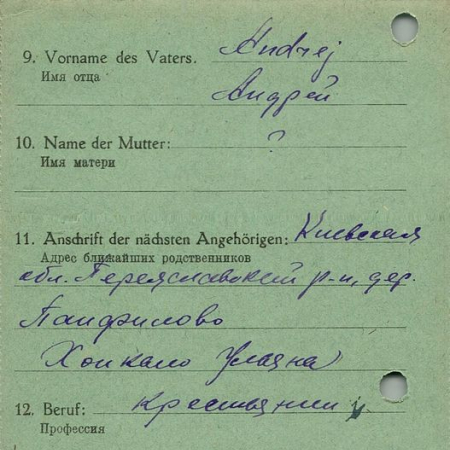 9. Vorname des Vaters. Andrej
Имя отца
Андрей
10. Name der Mutter: ?
Имя матери
11. Anschrift der nächsten Angehörigen: Киевская
Адрес ближайших родственников
обл. Переяславский р-н, дер.
Панфилово
Хоикало Уляна
12. Beruf: крестьянин
Профессия